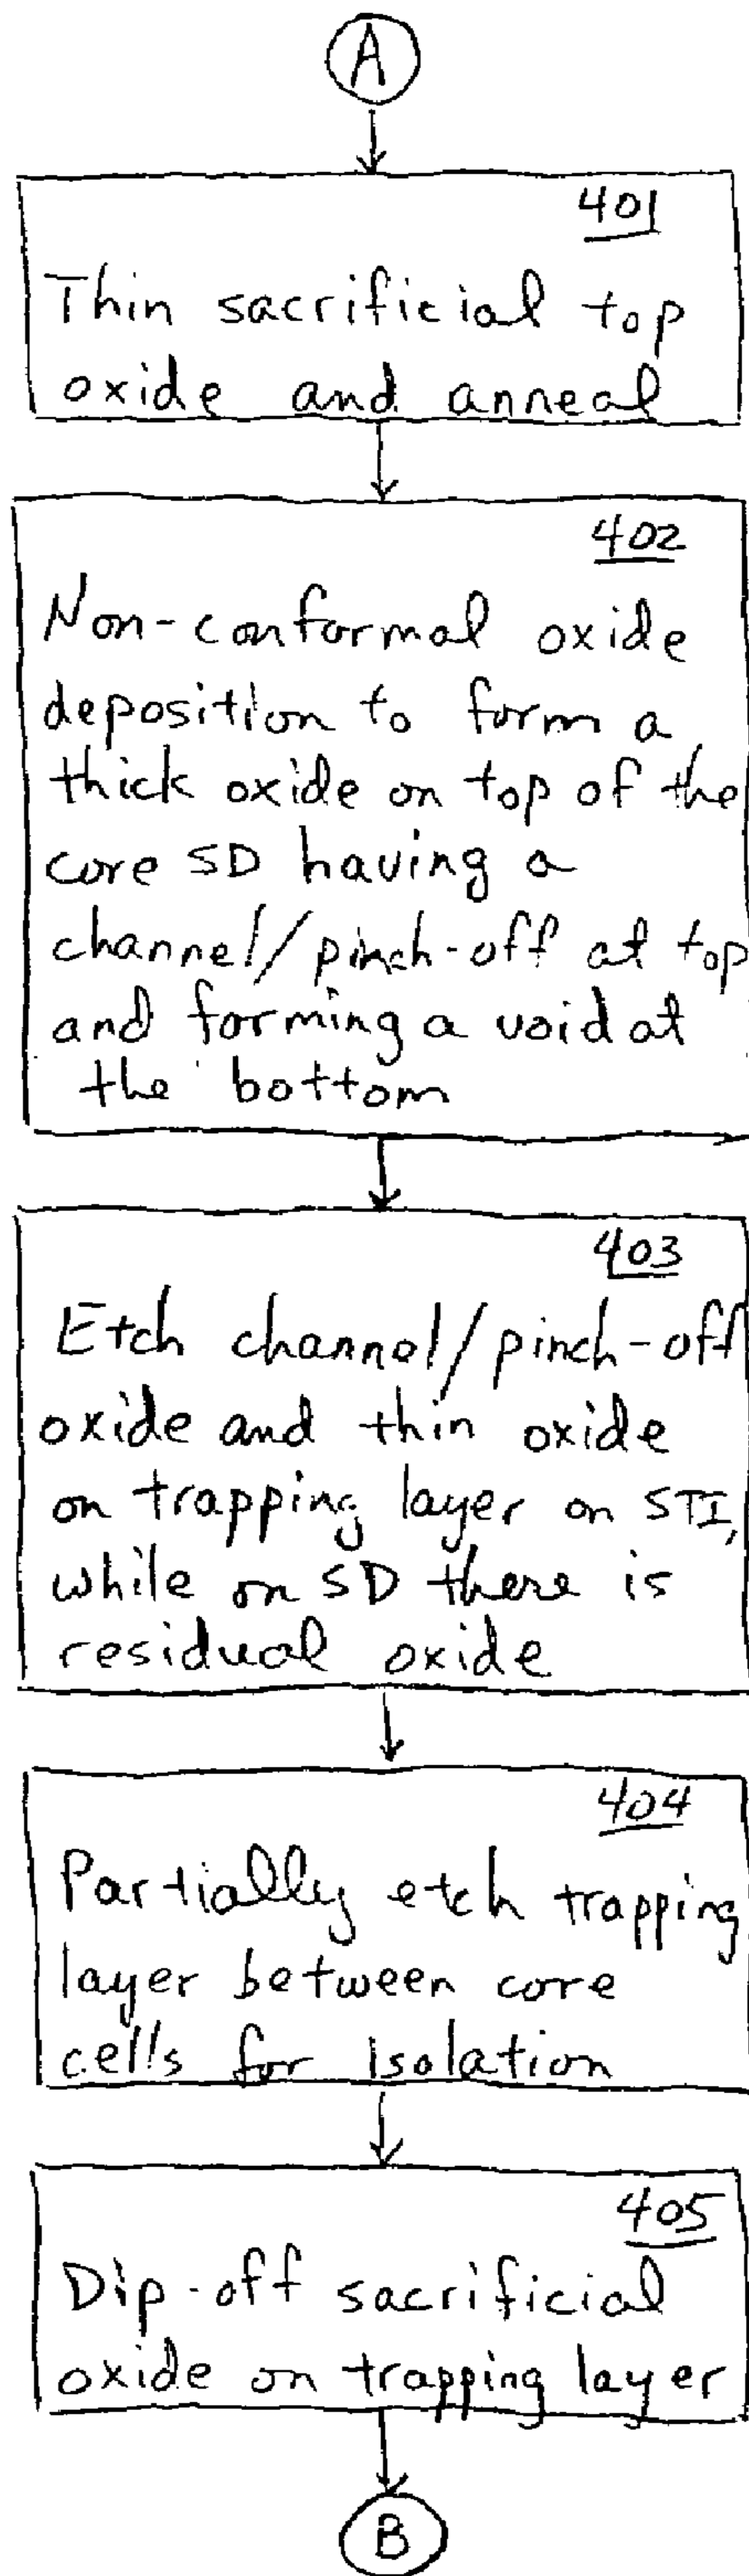 A
401
Thin sacrificial top
oxide and anneal
402
Non-conformal oxide
deposition to form a
thick oxide on top of the
core SD having a
channel/pinch-off at top
and forming a void at
the bottom
403
Etch channel/pinch-off
oxide and thin oxide
on trapping layer on STI,
while on SD there is
residual oxide
404
Partially etch trapping
layer between core
cells for isolation
405
Dip-off sacrificial
oxide on trapping layer
B